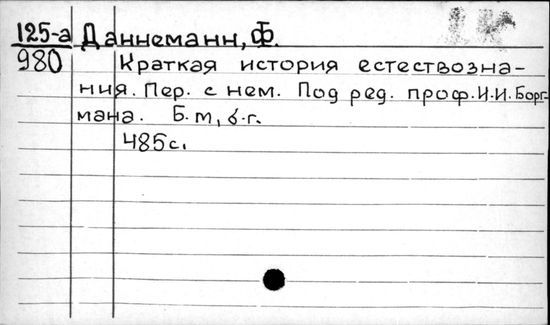 125-а Даннеманн, Ф.
980 Краткая история естествозна-
ния. Пер. с нем. Под ред. проф. И.И. Борг-
мана. Б. м, б. г.
485с.